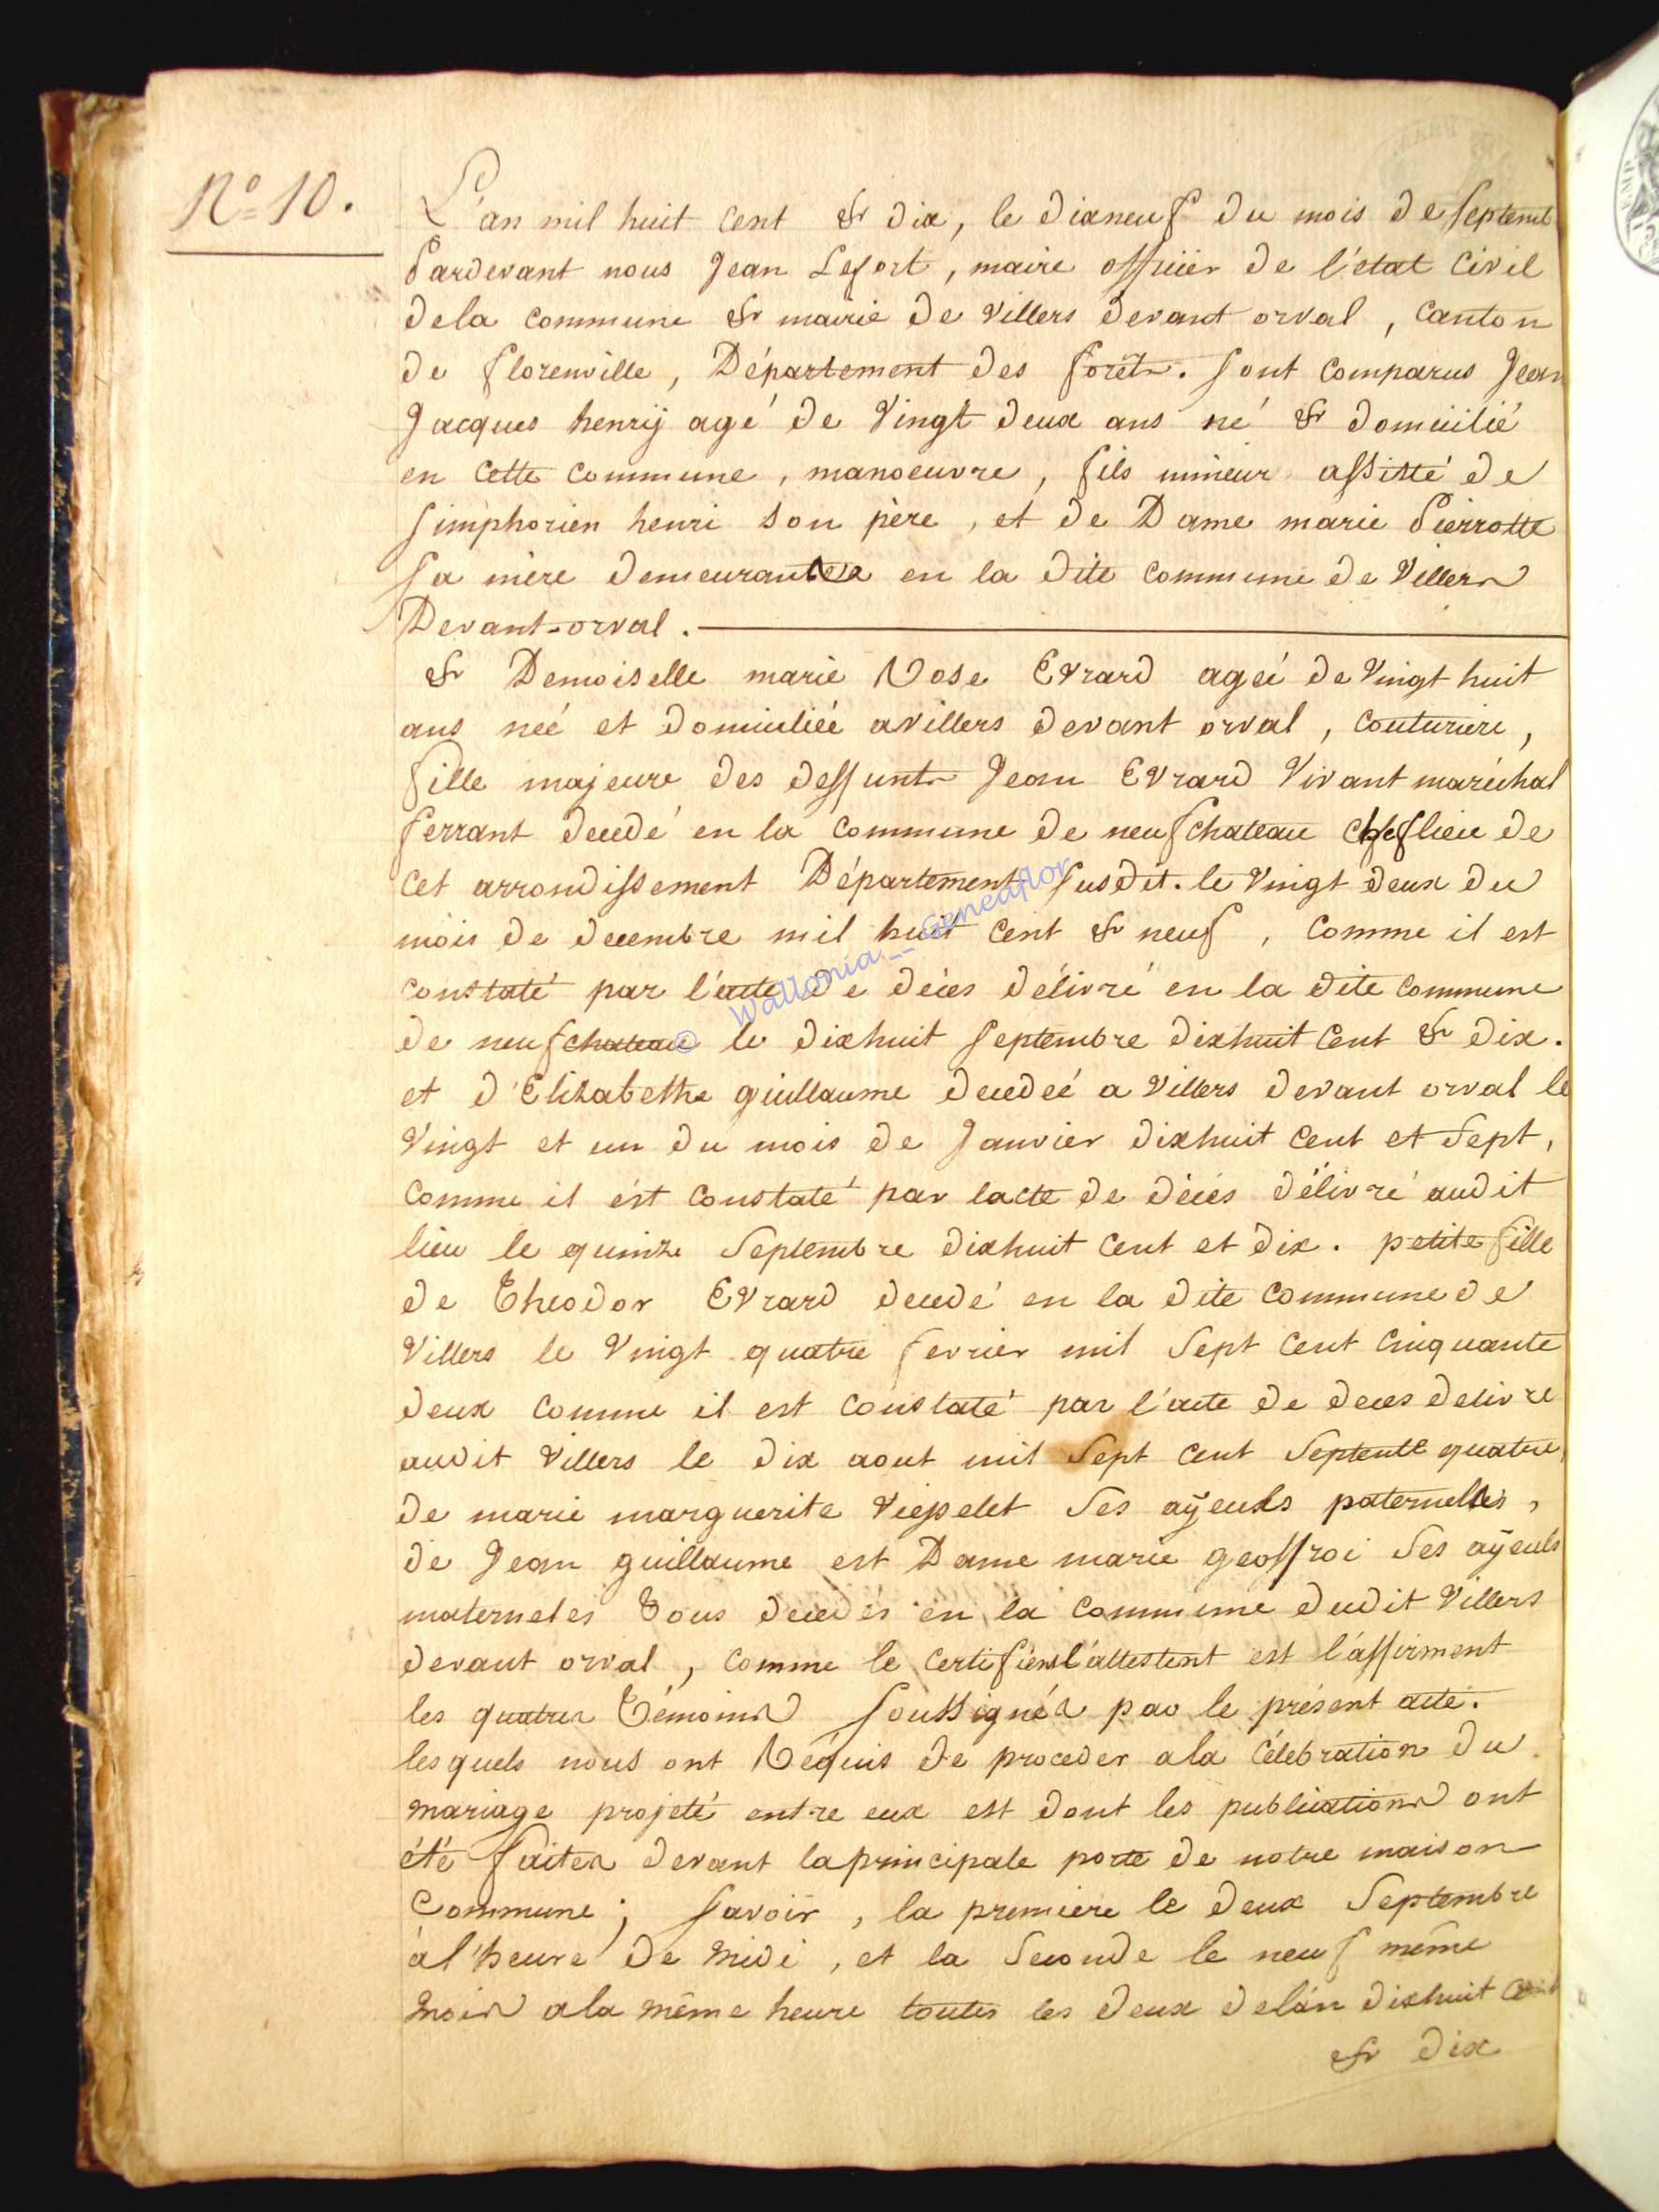 N.o 10.
L'an mil huit cent & dix, le dixneuf du mois de septemb
Pardevant nous Jean Lefort, maire officier de l'état civil
dela commune & mairie de Villers devant orval, canton
de florenville, Département des forêts. sont comparus Jean
Jacques henrÿ agé de Vingt deux ans né & domicilié
en cette commune, manoeuvre, fils mineur assisté de
simphorien henri son père, et de Dame marie Pierrotte
sa mère demeurantes en la dite commune de Villers
Devant-orval.
& Demoiselle marie Rose Evrard ageé de Vingt huit
ans neé et domiciliéé avillers devant orval, couturiere,
fille majeure des deffunts Jean Evrard Vivant maréchal
ferrant decedé en la commune de neufchateau cheflieu de
cet arrondissement Département susdit. le Vingt deux du
mois de decembre mil huit cent & neuf, comme il est
constaté par l'acte de décès délivré en la dite commune
de neufchateau le dixhuit septembre dixhuit cent & dix.
et d'Elizabethe guillaume decedeé a Villers devant orval le
Vingt et un du mois de Janvier dixhuit cent et sept,
comme il ést constaté par lacte de décés délivré audit
lieu le quinze septembre dixhuit cent et dix. petite fille
de Theodor Evrard decedé en la dite commune de
Villers le Vingt quatre fevrier mil sept cent cinquante
deux comme il est constaté par l'acte de deces delivre
audit Villers le dix aout mil sept cent septente quatre,
de marie marguerite ses aÿeuls paternelles,
de Jean guillaume est Dame marie geoffroi ses aÿeuls
materneles Tous decedés en la commune dudit Villers
devant orval, comme le certifient l'attestent est l'affirment
les quatres Témoins soussignés par le présent acte.
lesquels nous ont Réquis de proceder ala célébration du
mariage projeté entre eux est dont les publications ont
été faites devant laprincipale porte de notre maison
Commune; savoir, la premiere le deux septembre
àl'heure de midi, et la seconde le neuf même
mois ala même heure toutes les deux delán dixhuit cent
& dix
© Wallonia__Geneaflor